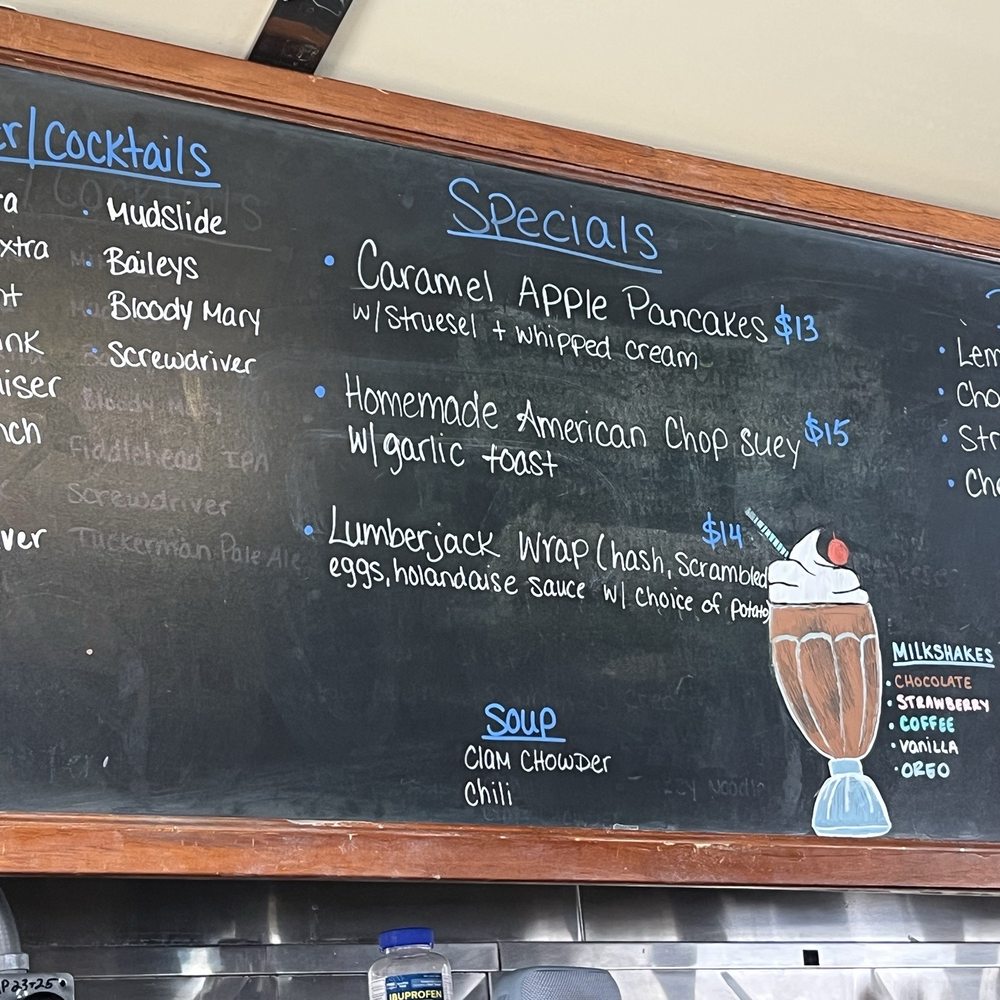 /Cocktails
• Mudslide
• Baileys
• Bloody Mary
• Screwdriver
Bloody Mary
Fiddlehead IPA
Screwdriver
Tuckerman Pale Ale
Specials
• Caramel Apple Pancakes $13
w/struesel + whipped cream
• Homemade American Chop suey $15
w/garlic toast
• Lumberjack Wrap (hash, scrambled $14
eggs, holandaise sauce w/ choice of potato)
Soup
Clam Chowder
Chili
MILKSHAKES
• CHOCOLATE
• STRAWBERRY
• COFFEE
• VANILLA
• OREO
IBUPROFEN